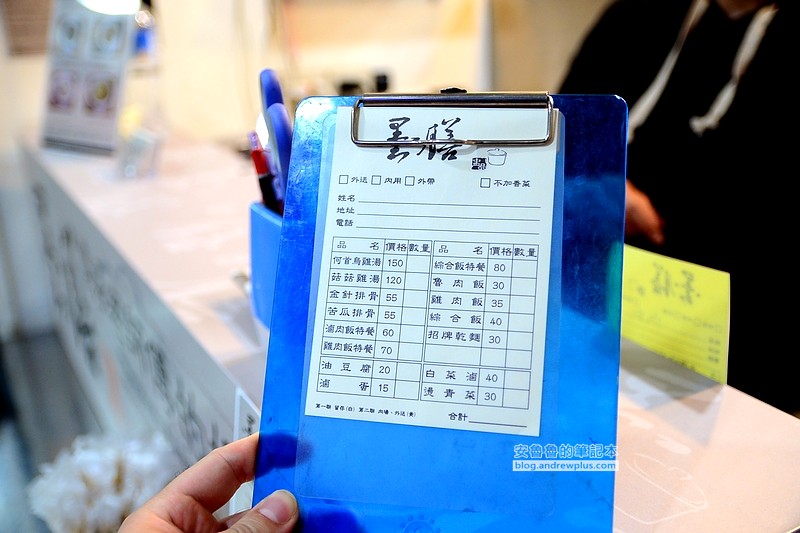 墨膳
□外送 □內用 □外帶 □不加香菜
姓名
地址
電話
品名 價格 數量 品名 價格 數量
何首烏雞湯 150 綜合飯特餐 80
菇菇雞湯 120 魯肉飯 30
金針排骨 55 雞肉飯 35
苦瓜排骨 55 綜合飯 40
滷肉飯特餐 60 招牌乾麵 30
雞肉飯特餐 70
油豆腐 20 白菜滷 40
滷蛋 15 燙青菜 30
第一聯 留存(白) 第二聯 內場、外送(黃) 合計
安魯魯的筆記本
blog.andrewplus.com
墨膳